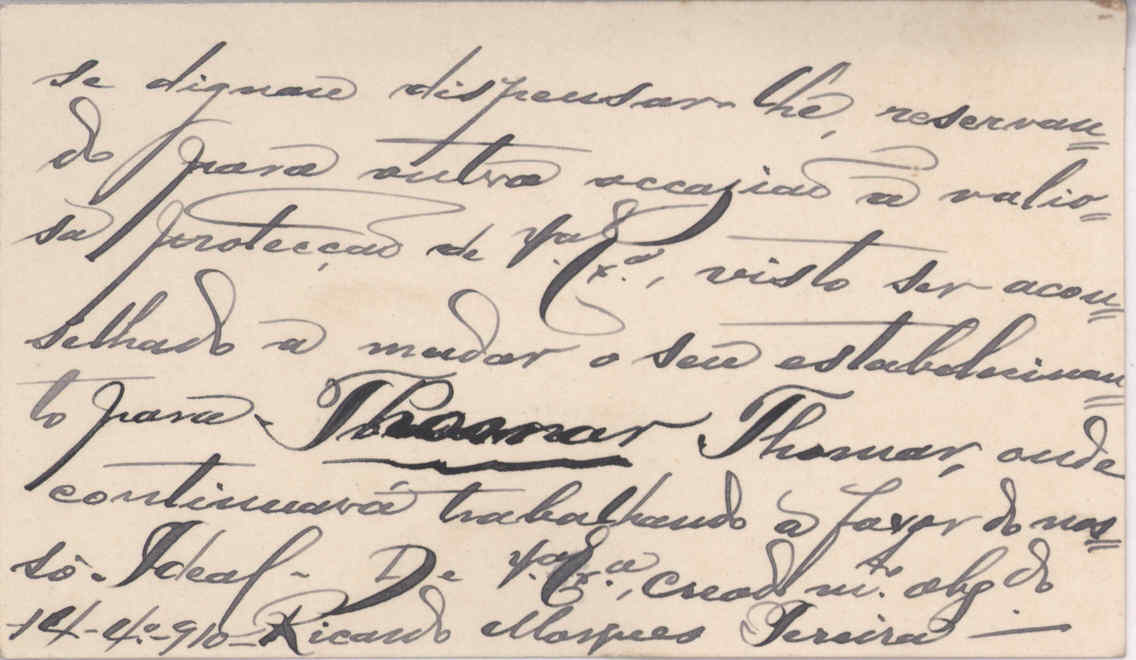 se dignou dispensar-lhe, reservan=
do para outra occasião a valio=
sa protecção de V.ª Ex.ª, visto ser acon=
selhado a mudar o seu estabelecimen=
to para - Thomar Thomar, onde
continuará trabalhando a favor do nos=
so - Ideal - De V.ª Ex.ª, creado m.to obg.do
14-4.º-910 - Ricardo Marques Pereira -